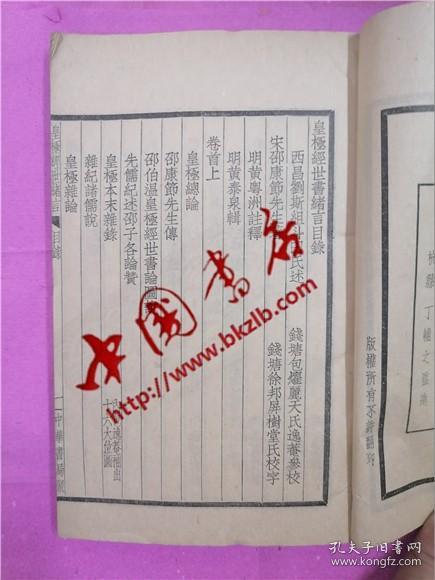 皇極經世書緒言目錄
西昌劉斯組斗田氏述
宋邵康節先生
錢塘包燿麗天氏逸菴參校
明黃粵洲註釋
錢塘徐邦屏樹堂氏校字
明黃泰泉輯
卷首上
皇極總論
邵康節先生傳
邵伯溫皇極經世書論圖說
先儒紀述邵子各論贊
皇極本末雜錄
十六大位圖
雜紀諸儒說
皇極雜論
皇極經世緒言
目錄
一
中華書局
版權所有不許翻印
丁輔之監造
中國書部
http://www.bkzlb.com
孔夫子旧书网
kongfz.com